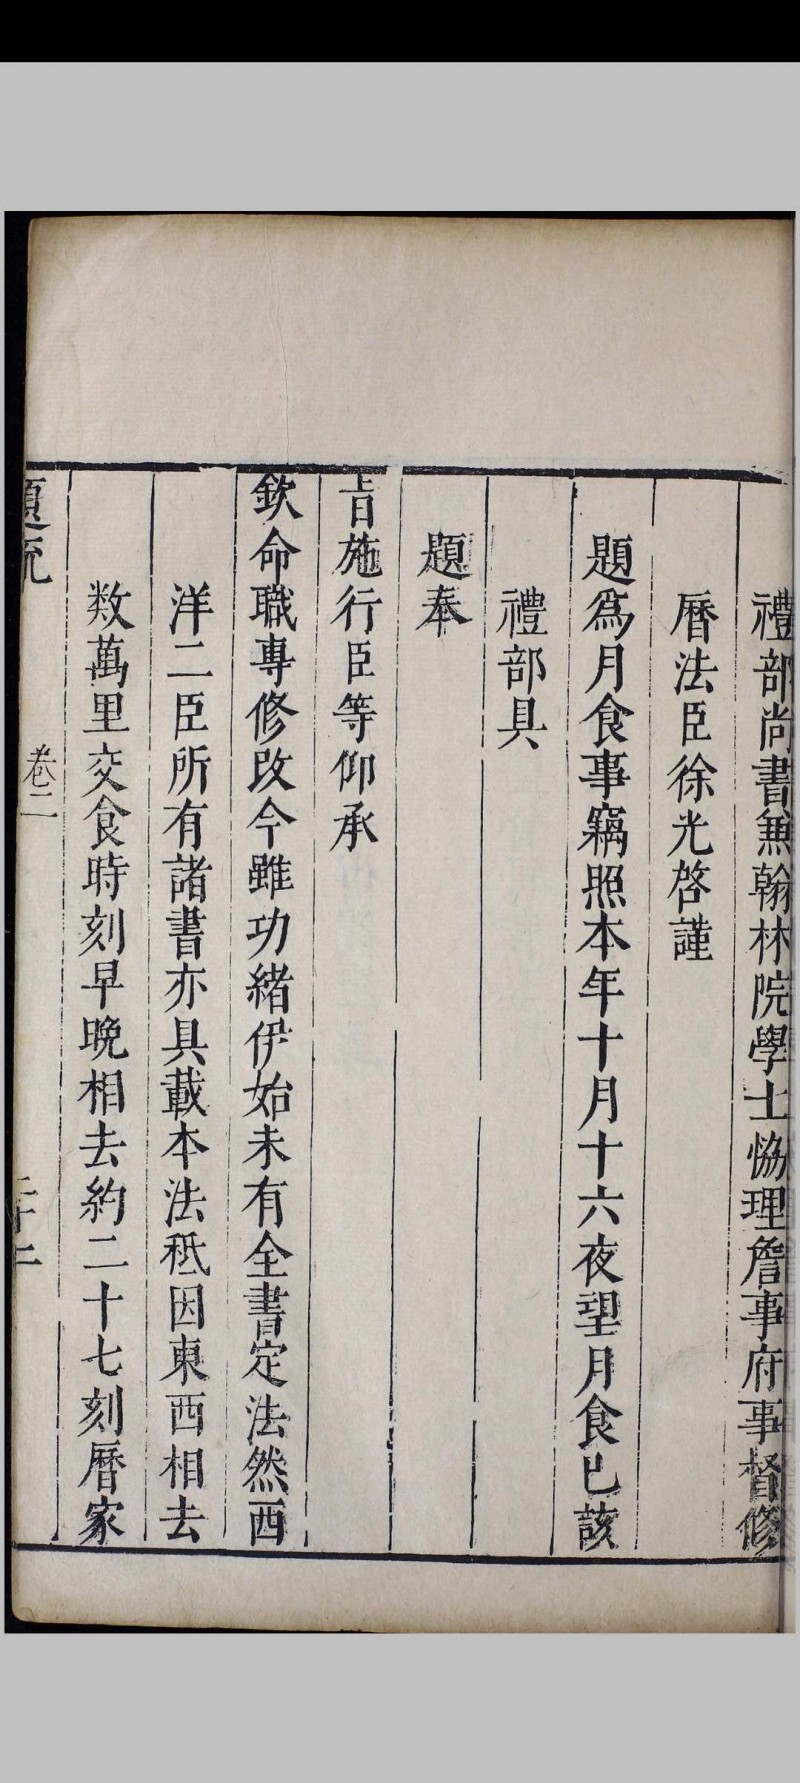 禮部尚書兼翰林院學士協理詹事府事督修
曆法臣徐光啓謹
題為月食事竊照本年十月十六夜望月食已該
禮部具
題奉
旨施行臣等仰承
欽命職專修改今雖功緒伊始未有全書定法然西
洋二臣所有諸書亦具載本法秪因東西相去
数萬里交食時刻早晚相去約二十七刻曆家
卷二